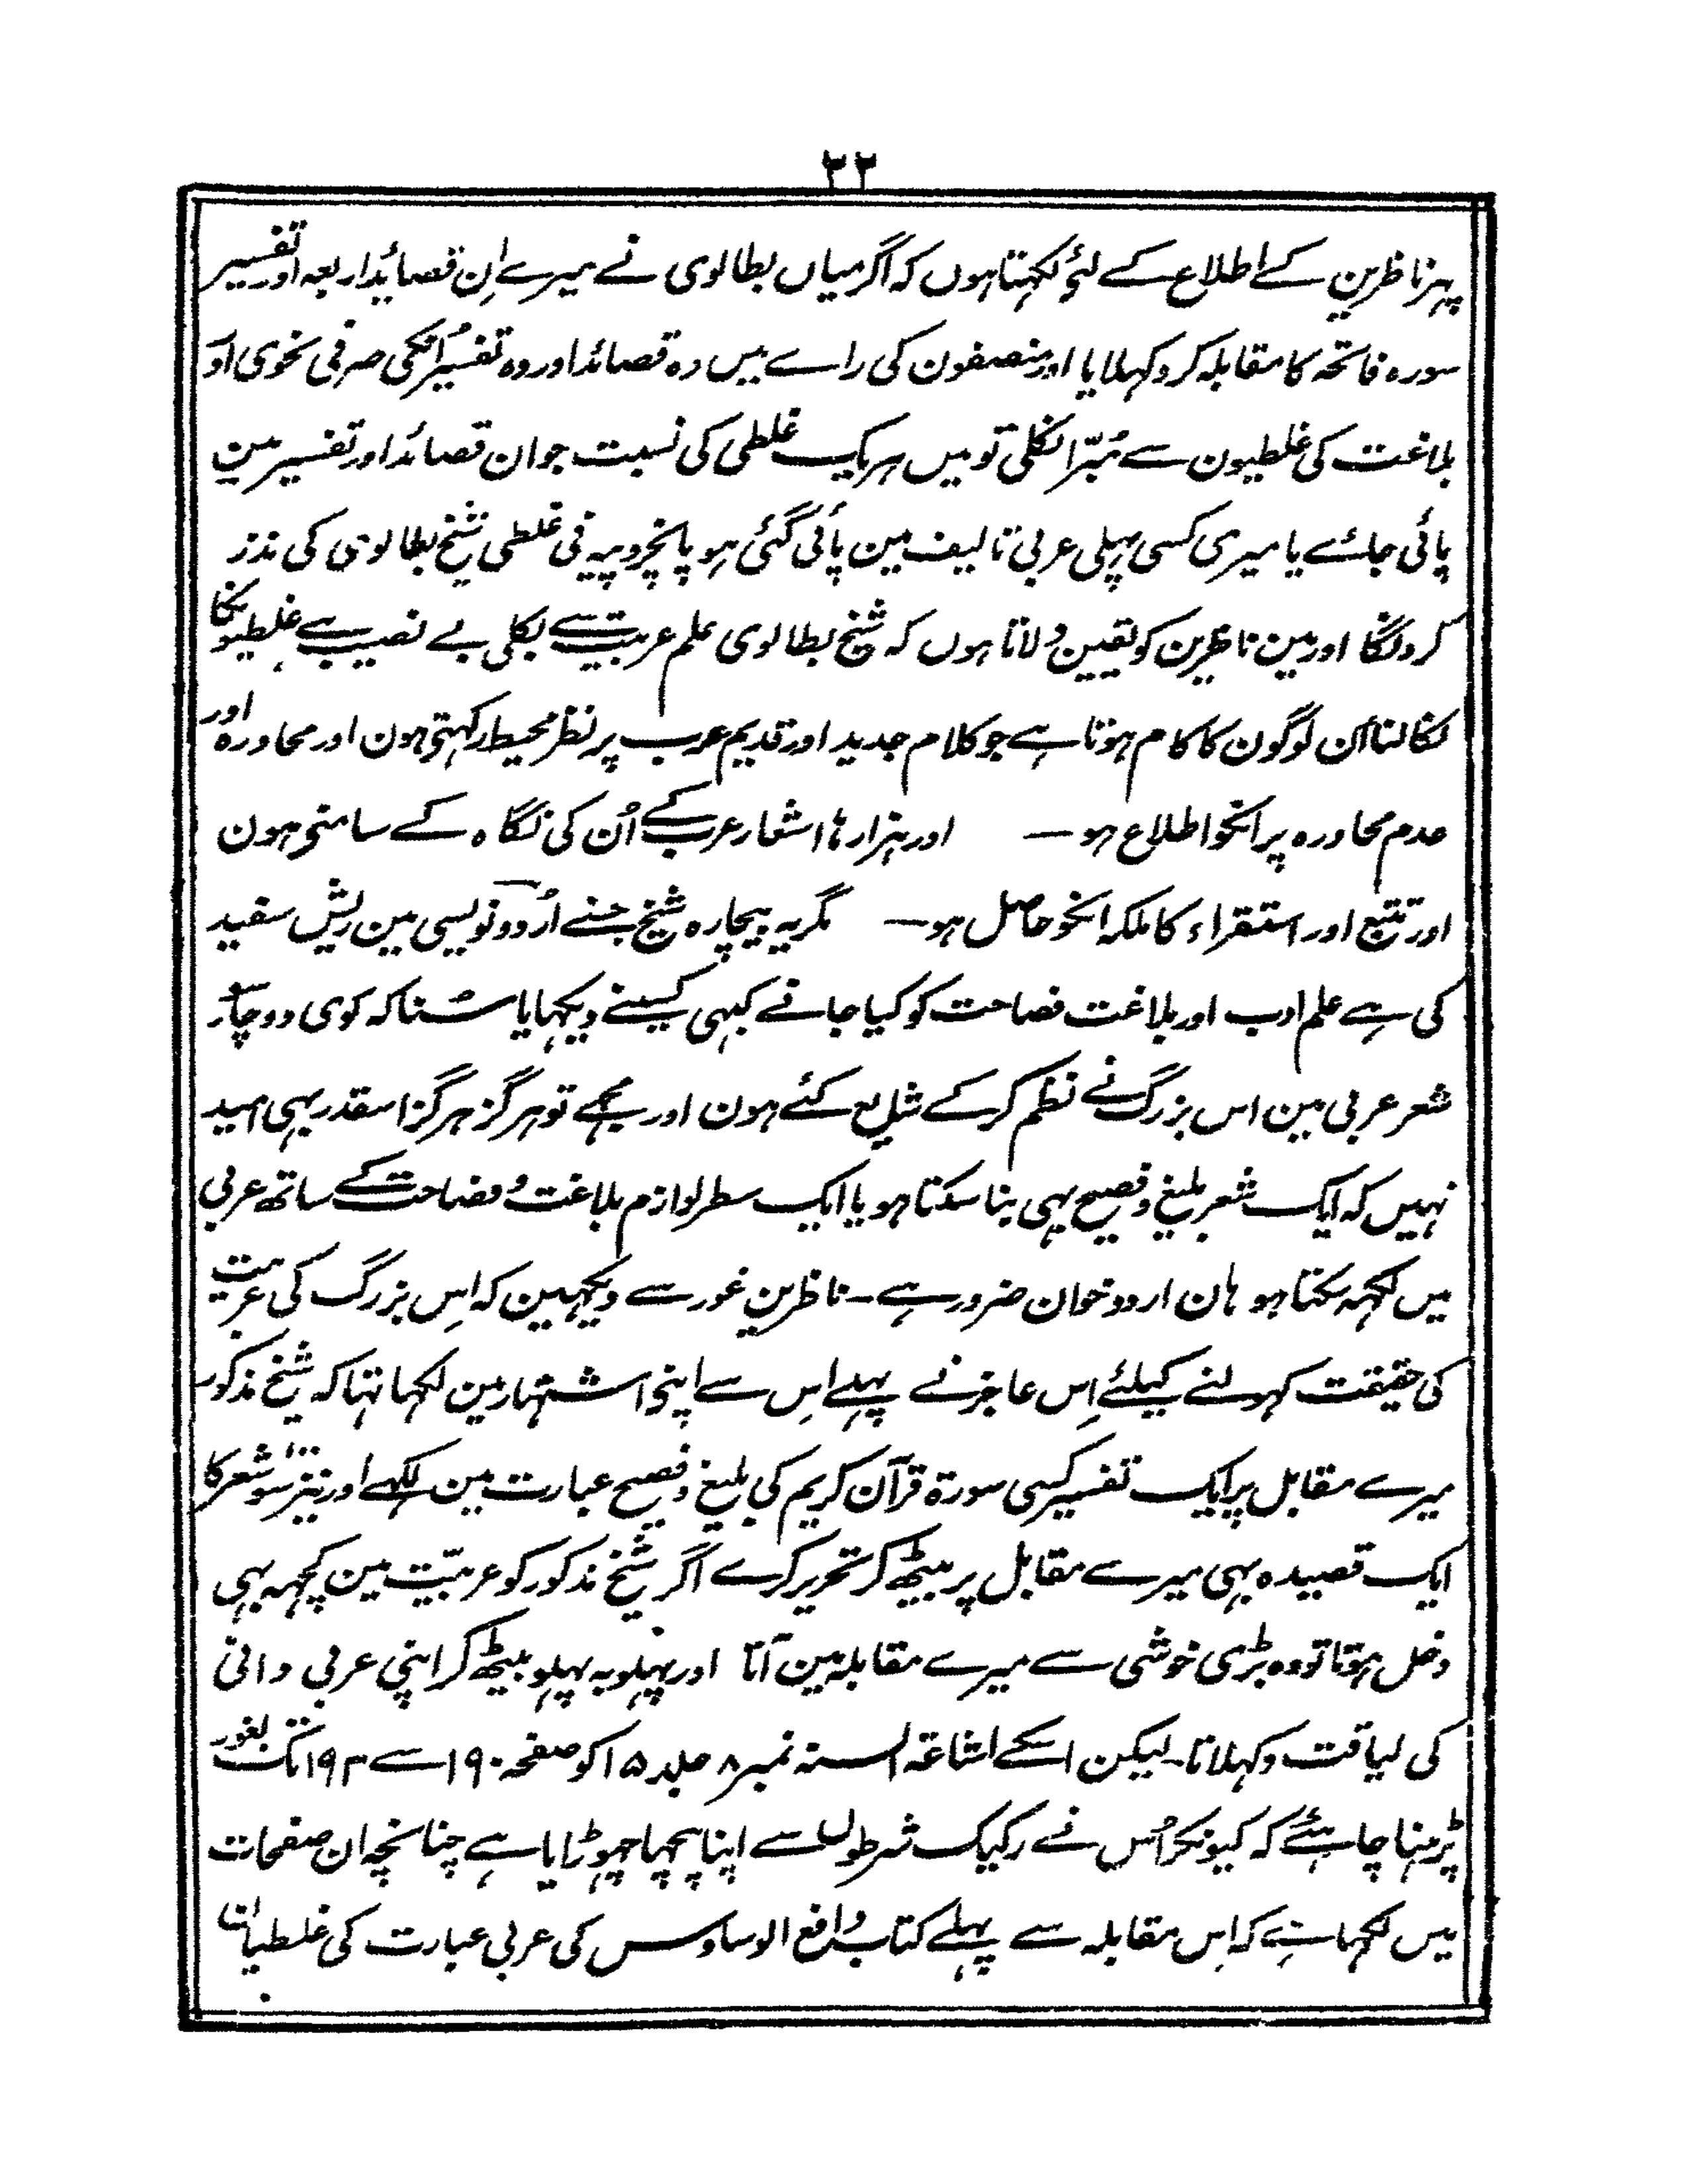 ۳۲
پہر ناظرین کے اطلاع کے لئے لکہتا ہوں کہ اگر میاں بطالوی نے میرے اِن قصائد اربعہ اور تفسیر
سورہ فاتحہ کا مقابلہ کر دکہلایا اور منصفون کی راے میں وہ قصائد اور وہ تفسیر اُنکی صرفی نحوی اور
بلاغت کی غلطیون سے مُبرّا نکلی تو میں ہریک غلطی کی نسبت جو ان قصائد اور تفسیر مین
پائی جائے یا میری کسی پہلی عربی تالیف مین پائی گئی ہو پانچروپیہ فی غلطی شیخ بطالوی کی نذر
کرونگا اور مین ناظرین کو یقین دلاتا ہوں کہ شیخ بطالوی علم عربیت سے بکلی بے نصیب ہے غلطیونکا
نکالنا اُن لوگون کا کام ہوتا ہے جو کلام جدید اور قدیم عرب پر نظر محیط رکہتے ہون اور محاورہ اور
عدم محاورہ پر انکو اطلاع ہو ــ اور ہزارہا اشعار عرب کے اُن کی نگاہ کے سامنے ہون
اور تتبع اور استقراء کا ملکہ انکو حاصل ہو ــ مگر یہ بیچارہ شیخ جسنے اُردو نویسی مین ریش سفید
کی ہے علم ادب اور بلاغت فصاحت کو کیا جانے کبہی کسینے دیکہا یا سُنا کہ کوی دو چار سَو
شعر عربی مین اس بزرگ نے نظم کرکے شایع کئے ہون اور مجہے تو ہرگز ہرگز اسقدر بہی امید
نہیں کہ ایک شعر بلیغ و فصیح بہی بنا سکتا ہو یا ایک سطر لوازم بلاغت و فصاحت کے ساتھ عربی
میں لکہہ سکتا ہو ہان اردو خوان ضرور ہے ــ ناظرین غور سے دیکہین کہ اِس بزرگ کی عربیت
کی حقیقت کہولنے کیلئے اِس عاجز نے پہلے اِس سے اپنے اشتہار مین لکہا تہا کہ شیخ مذکور
میرے مقابل پر ایک تفسیر کسی سورۃ قرآن کریم کی بلیغ و فصیح عبارت مین لکہے اور نیز سَو شعر کا
ایک قصیدہ بہی میرے مقابل پر بیٹھ کر تحریر کرے اگر شیخ مذکور کو عربیّت مین کچہہ بہی
دخل ہوتا تو وہ بڑی خوشی سے میرے مقابلہ مین آتا اور پہلو بہ پہلو بیٹھ کر اپنی عربی دانی
کی لیاقت دکہلاتا ــ لیکن اسکے اشاعۃ السنہ نمبر ۸ جلد ۱۵ کو صفحہ ۱۹۰ سے ۱۹۲ تک بغور
پڑہنا چاہئے کہ کیونکر اُس نے رکیک شرطوں سے اپنا پیچہا چہوڑایا ہے چنانچہ ان صفحات
میں لکہا ہے کہ اِس مقابلہ سے پہلے کتاب دافع الوساوس کی عربی عبارت کی غلطیان